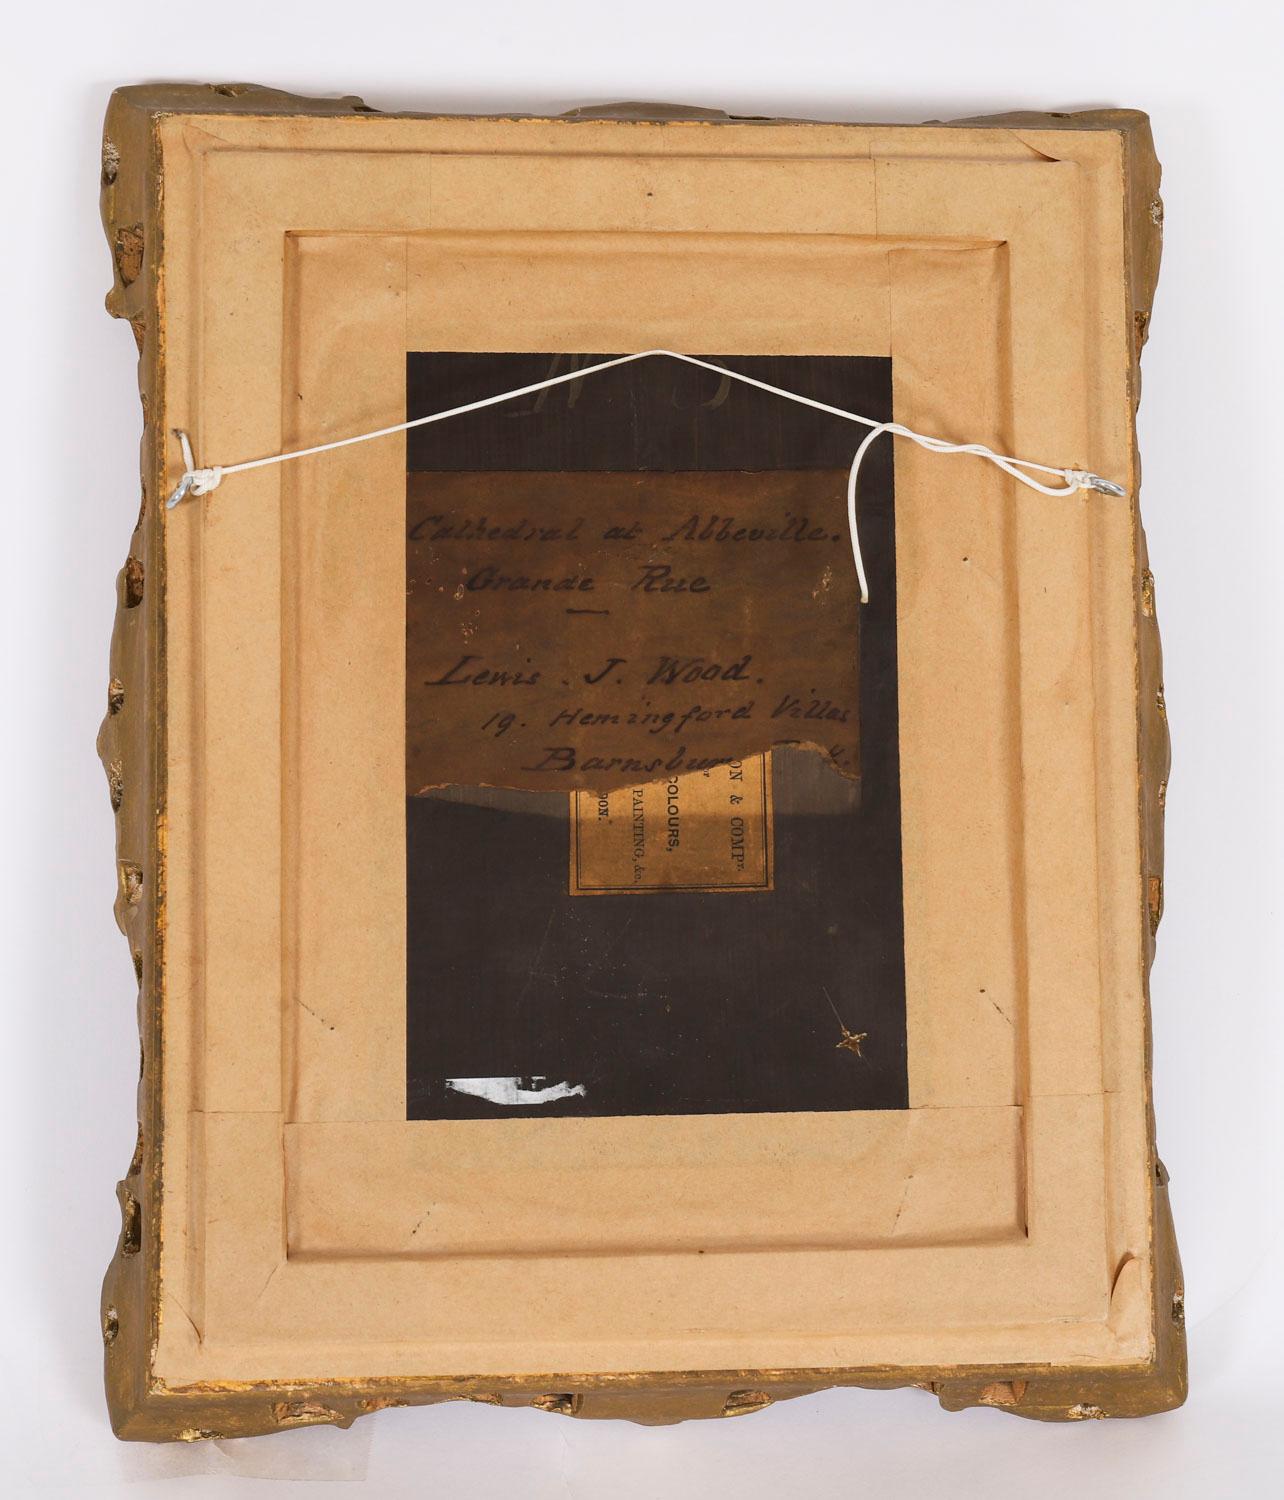 Cathedral at Abbeville.
Grande Rue
Lewis. J. Wood.
19. Hemingford Villas
Barnsbury
ON & COMPY.
COLOURS,
PAINTING, &c.
DON.